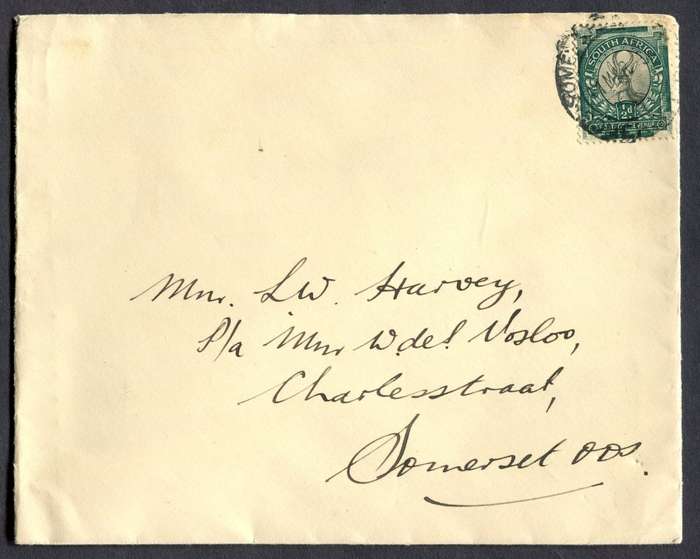 SOMERSET
SOUTH AFRICA
½d
Mnr. L.W. Harvey,
P/a Mnr W.de V. Vosloo,
Charlesstraat,
Somerset Oos.